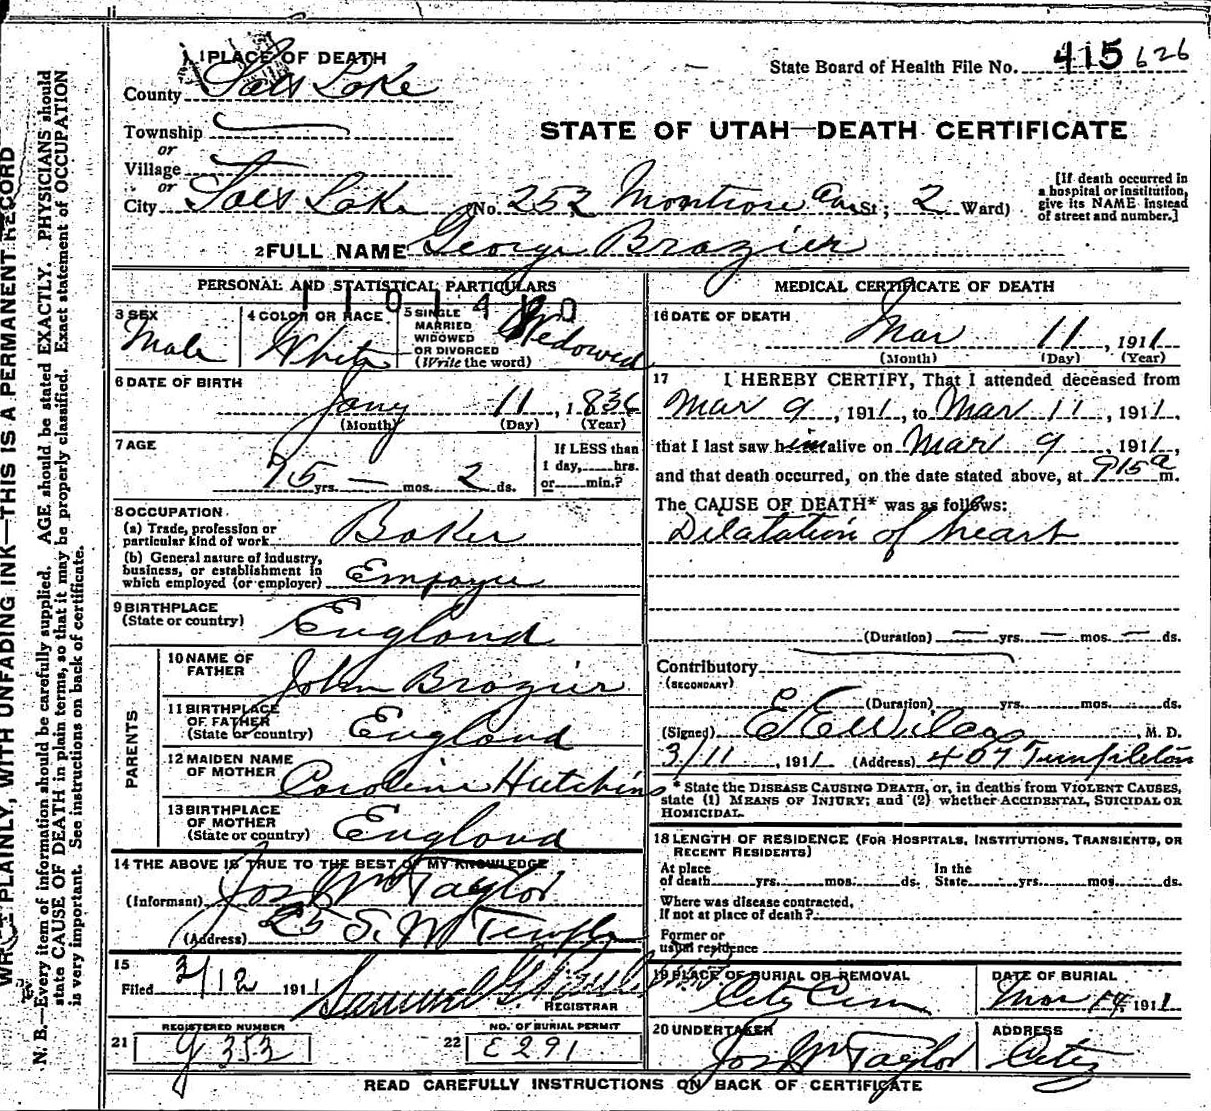 WRITE PLAINLY, WITH UNFADING INK—THIS IS A PERMANENT RECORD
N. B.—Every item of information should be carefully supplied. AGE should be stated EXACTLY. PHYSICIANS should
state CAUSE OF DEATH in plain terms, so that it may be properly classified. Exact statement of OCCUPATION
is very important. See instructions on back of certificate.
1 PLACE OF DEATH
State Board of Health File No. 415 626
County Salt Lake
STATE OF UTAH—DEATH CERTIFICATE
Township
or
Village
or
City Salt Lake No. 252 Montrose Av. St; 2 Ward)
[If death occurred in a hospital or institution, give its NAME instead of street and number.]
2 FULL NAME George Brazier
PERSONAL AND STATISTICAL PARTICULARS
3 SEX
Male
4 COLOR OR RACE
White
5 SINGLE
MARRIED
WIDOWED
OR DIVORCED
(Write the word)
Wedowed
6 DATE OF BIRTH
Jany 11, 1836
(Month) (Day) (Year)
7 AGE
75 yrs. — mos. 2 ds.
If LESS than
1 day, hrs.
or min.?
8 OCCUPATION
(a) Trade, profession or
particular kind of work Baker
(b) General nature of industry,
business, or establishment in
which employed (or employer)
9 BIRTHPLACE
(State or country) England
PARENTS
10 NAME OF
FATHER John Brazier
11 BIRTHPLACE
OF FATHER
(State or country) England
12 MAIDEN NAME
OF MOTHER Caroline Hutchins
13 BIRTHPLACE
OF MOTHER
(State or country) England
14 THE ABOVE IS TRUE TO THE BEST OF MY KNOWLEDGE
(Informant) Jos Wm Taylor
(Address) 25 S. W Temple
15
Filed 3/12 1911 Samuel G
REGISTRAR
REGISTERED NUMBER
21 g 353
NO. OF BURIAL PERMIT
22 E 291
MEDICAL CERTIFICATE OF DEATH
16 DATE OF DEATH
Mar 11, 1911
(Month) (Day) (Year)
17 I HEREBY CERTIFY, That I attended deceased from
Mar 9, 1911, to Mar 11, 1911,
that I last saw him alive on Mar 9, 1911,
and that death occurred, on the date stated above, at 915 a m.
The CAUSE OF DEATH* was as follows:
Dilatation of heart
(Duration) — yrs. — mos. — ds.
Contributory
(SECONDARY)
(Duration) yrs. mos. ds.
(Signed) E E Wilcox M. D.
3/11, 1911 (Address) 407 Templeton
* State the DISEASE CAUSING DEATH, or, in deaths from VIOLENT CAUSES,
state (1) MEANS OF INJURY; and (2) whether ACCIDENTAL, SUICIDAL OR
HOMICIDAL.
18 LENGTH OF RESIDENCE (FOR HOSPITALS, INSTITUTIONS, TRANSIENTS, OR
RECENT RESIDENTS)
At place
of death yrs. mos. ds.
In the
State yrs. mos. ds.
Where was disease contracted,
If not at place of death?
Former or
usual residence
19 PLACE OF BURIAL OR REMOVAL
City Cem
DATE OF BURIAL
Mar 14, 1911
20 UNDERTAKER
Jos Wm Taylor
ADDRESS
City
READ CAREFULLY INSTRUCTIONS ON BACK OF CERTIFICATE